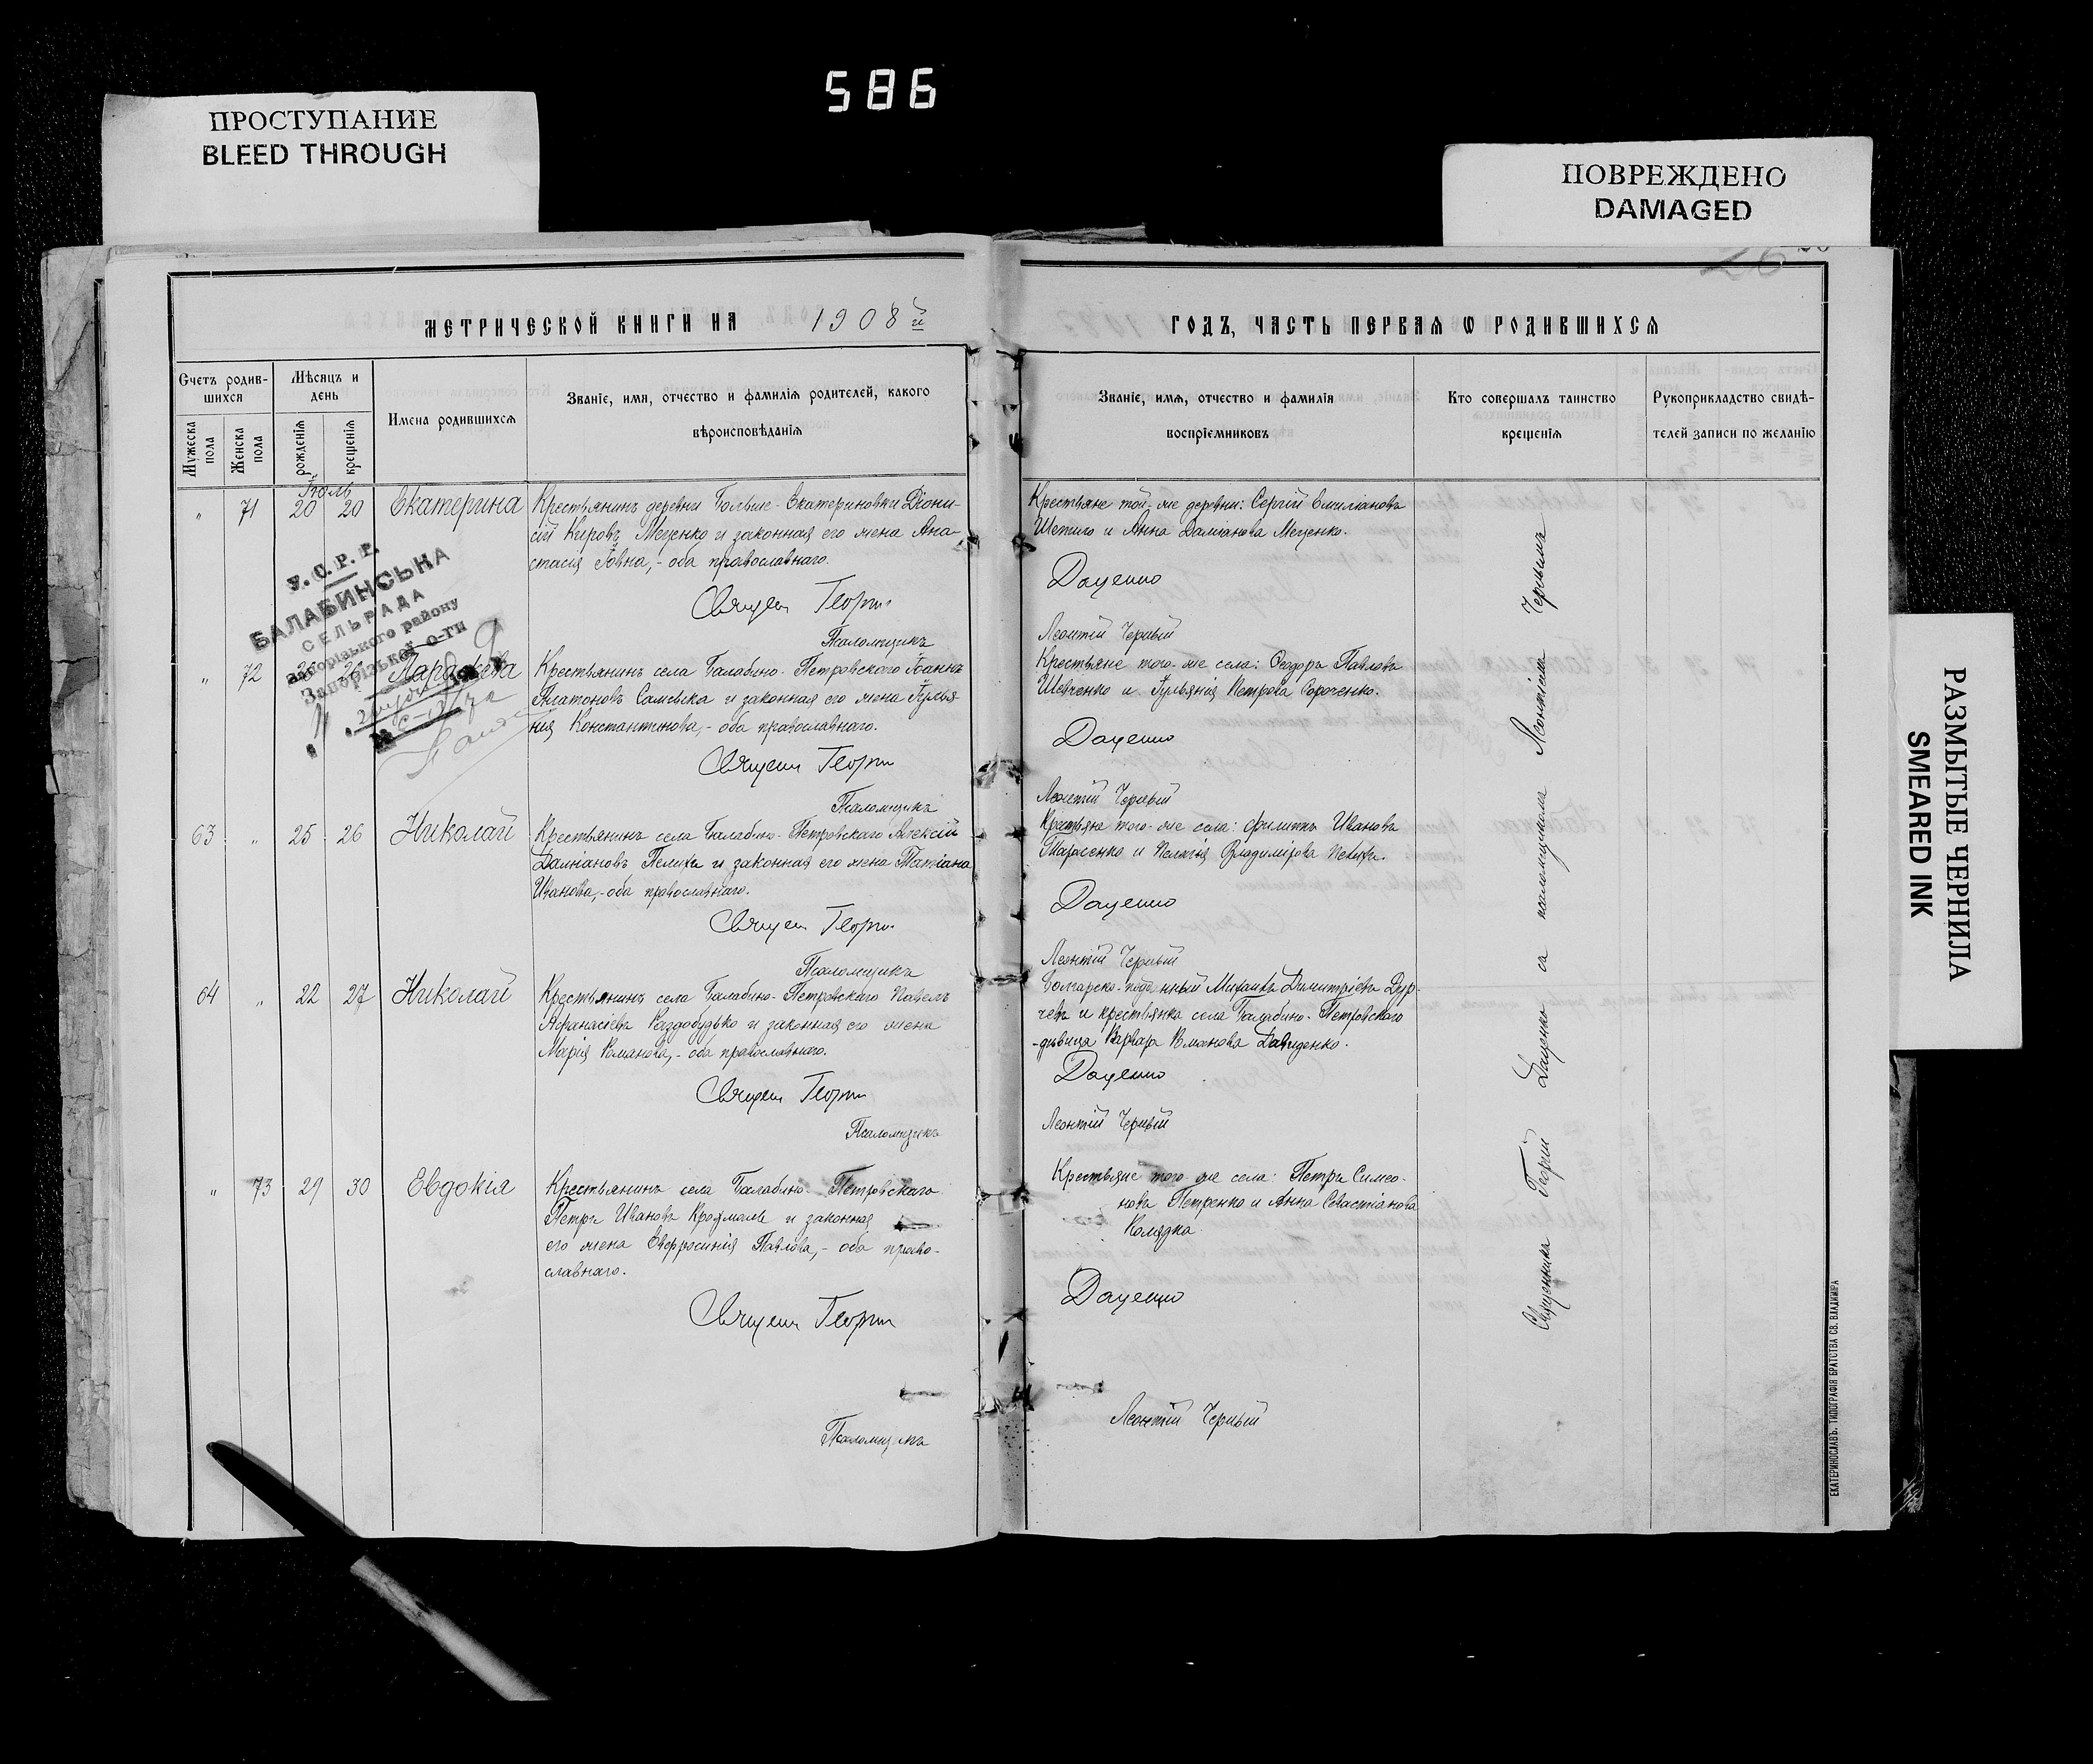 586
ПРОСТУПАНИЕ
BLEED THROUGH
ПОВРЕЖДЕНО
DAMAGED
РАЗМЫТЫЕ ЧЕРНИЛА
SMEARED INK
26
МЕТРИЧЕСКОЙ КНИГИ НА 1908й
ГОДЪ, ЧАСТЬ ПЕРВАЯ Ѡ РОДИВШИХСЯ
Счетъ родив-
шихся
Мужеска
пола
Женска
пола
Мѣсяцъ и
день
рожденія
крещенія
Имена родившихся
Званіе, имя, отчество и фамилія родителей, какого
вѣроисповѣданія
Званіе, имя, отчество и фамилія
воспріемниковъ
Кто совершалъ таинство
крещенія
Рукоприкладство свидѣ-
телей записи по желанію
Іюль
" 71 20 20 Екатерина
Крестьянинъ деревни Больше-Екатериновки Діони-
сій Кировъ Меценко и законная его жена Ана-
стасія Іовна,- оба православнаго.
Священ Георгій
Псаломщикъ
Крестьяне той-же деревни: Сергій Емиліановъ
Шепило и Анна Даміанова Меценко.
Даценко
Леонтій Черный
У.С.Р.Р.
БАЛАБИНСЬКА
СЕЛЬРАДА
Запорізького району
Запорізької О-ГИ
" 72 25 26 Параскева
Крестьянинъ села Балабино-Петровскаго Іоаннъ
Платоновъ Самсыка и законная его жена Іулья-
нія Константинова,- оба православнаго.
Священ Георгій
Псаломщикъ
Крестьяне того-же села: Ѳеодоръ Павловъ
Шевченко и Іульянія Петрова Сороченко.
Даценко
Леонтій Черный
63 " 25 26 Николай
Крестьянинъ села Балабино-Петровскаго Алексій
Даміановъ Пелихъ и законная его жена Татіана
Иванова,- оба православнаго.
Священ Георгій
Псаломщикъ
Крестьяне того-же села: Филиппъ Ивановъ
Тарасенко и Пелагія Владимірова Пелихъ.
Даценко
Леонтій Черный
64 " 22 27 Николай
Крестьянинъ села Балабино-Петровскаго Павелъ
Аѳанасіевъ Раздобудько и законная его жена
Марія Романова,- оба православнаго.
Священ Георгій
Псаломщикъ
Болгарско-подданный Михаилъ Димитріевъ Дур-
чевъ и крестьянка села Балабино-Петровскаго
дѣвица Варвара Романова Давиденко.
Даценко
Леонтій Черный
" 73 29 30 Евдокія
Крестьянинъ села Балабино-Петровскаго
Петръ Ивановъ и законная
его жена Евфросинія Павлова,- оба право-
славнаго.
Священ Георгій
Псаломщикъ
Крестьяне того же села: Петръ Симео-
новъ Петренко и Анна Севастіанова
Колядка.
Даценко
Леонтій Черный
Священникъ Георгій Даценко съ псаломщикомъ Леонтіемъ Чернымъ
ЕКАТЕРИНОСЛАВЪ. ТИПОГРАФІЯ БРАТСТВА СВ. ВЛАДИМІРА